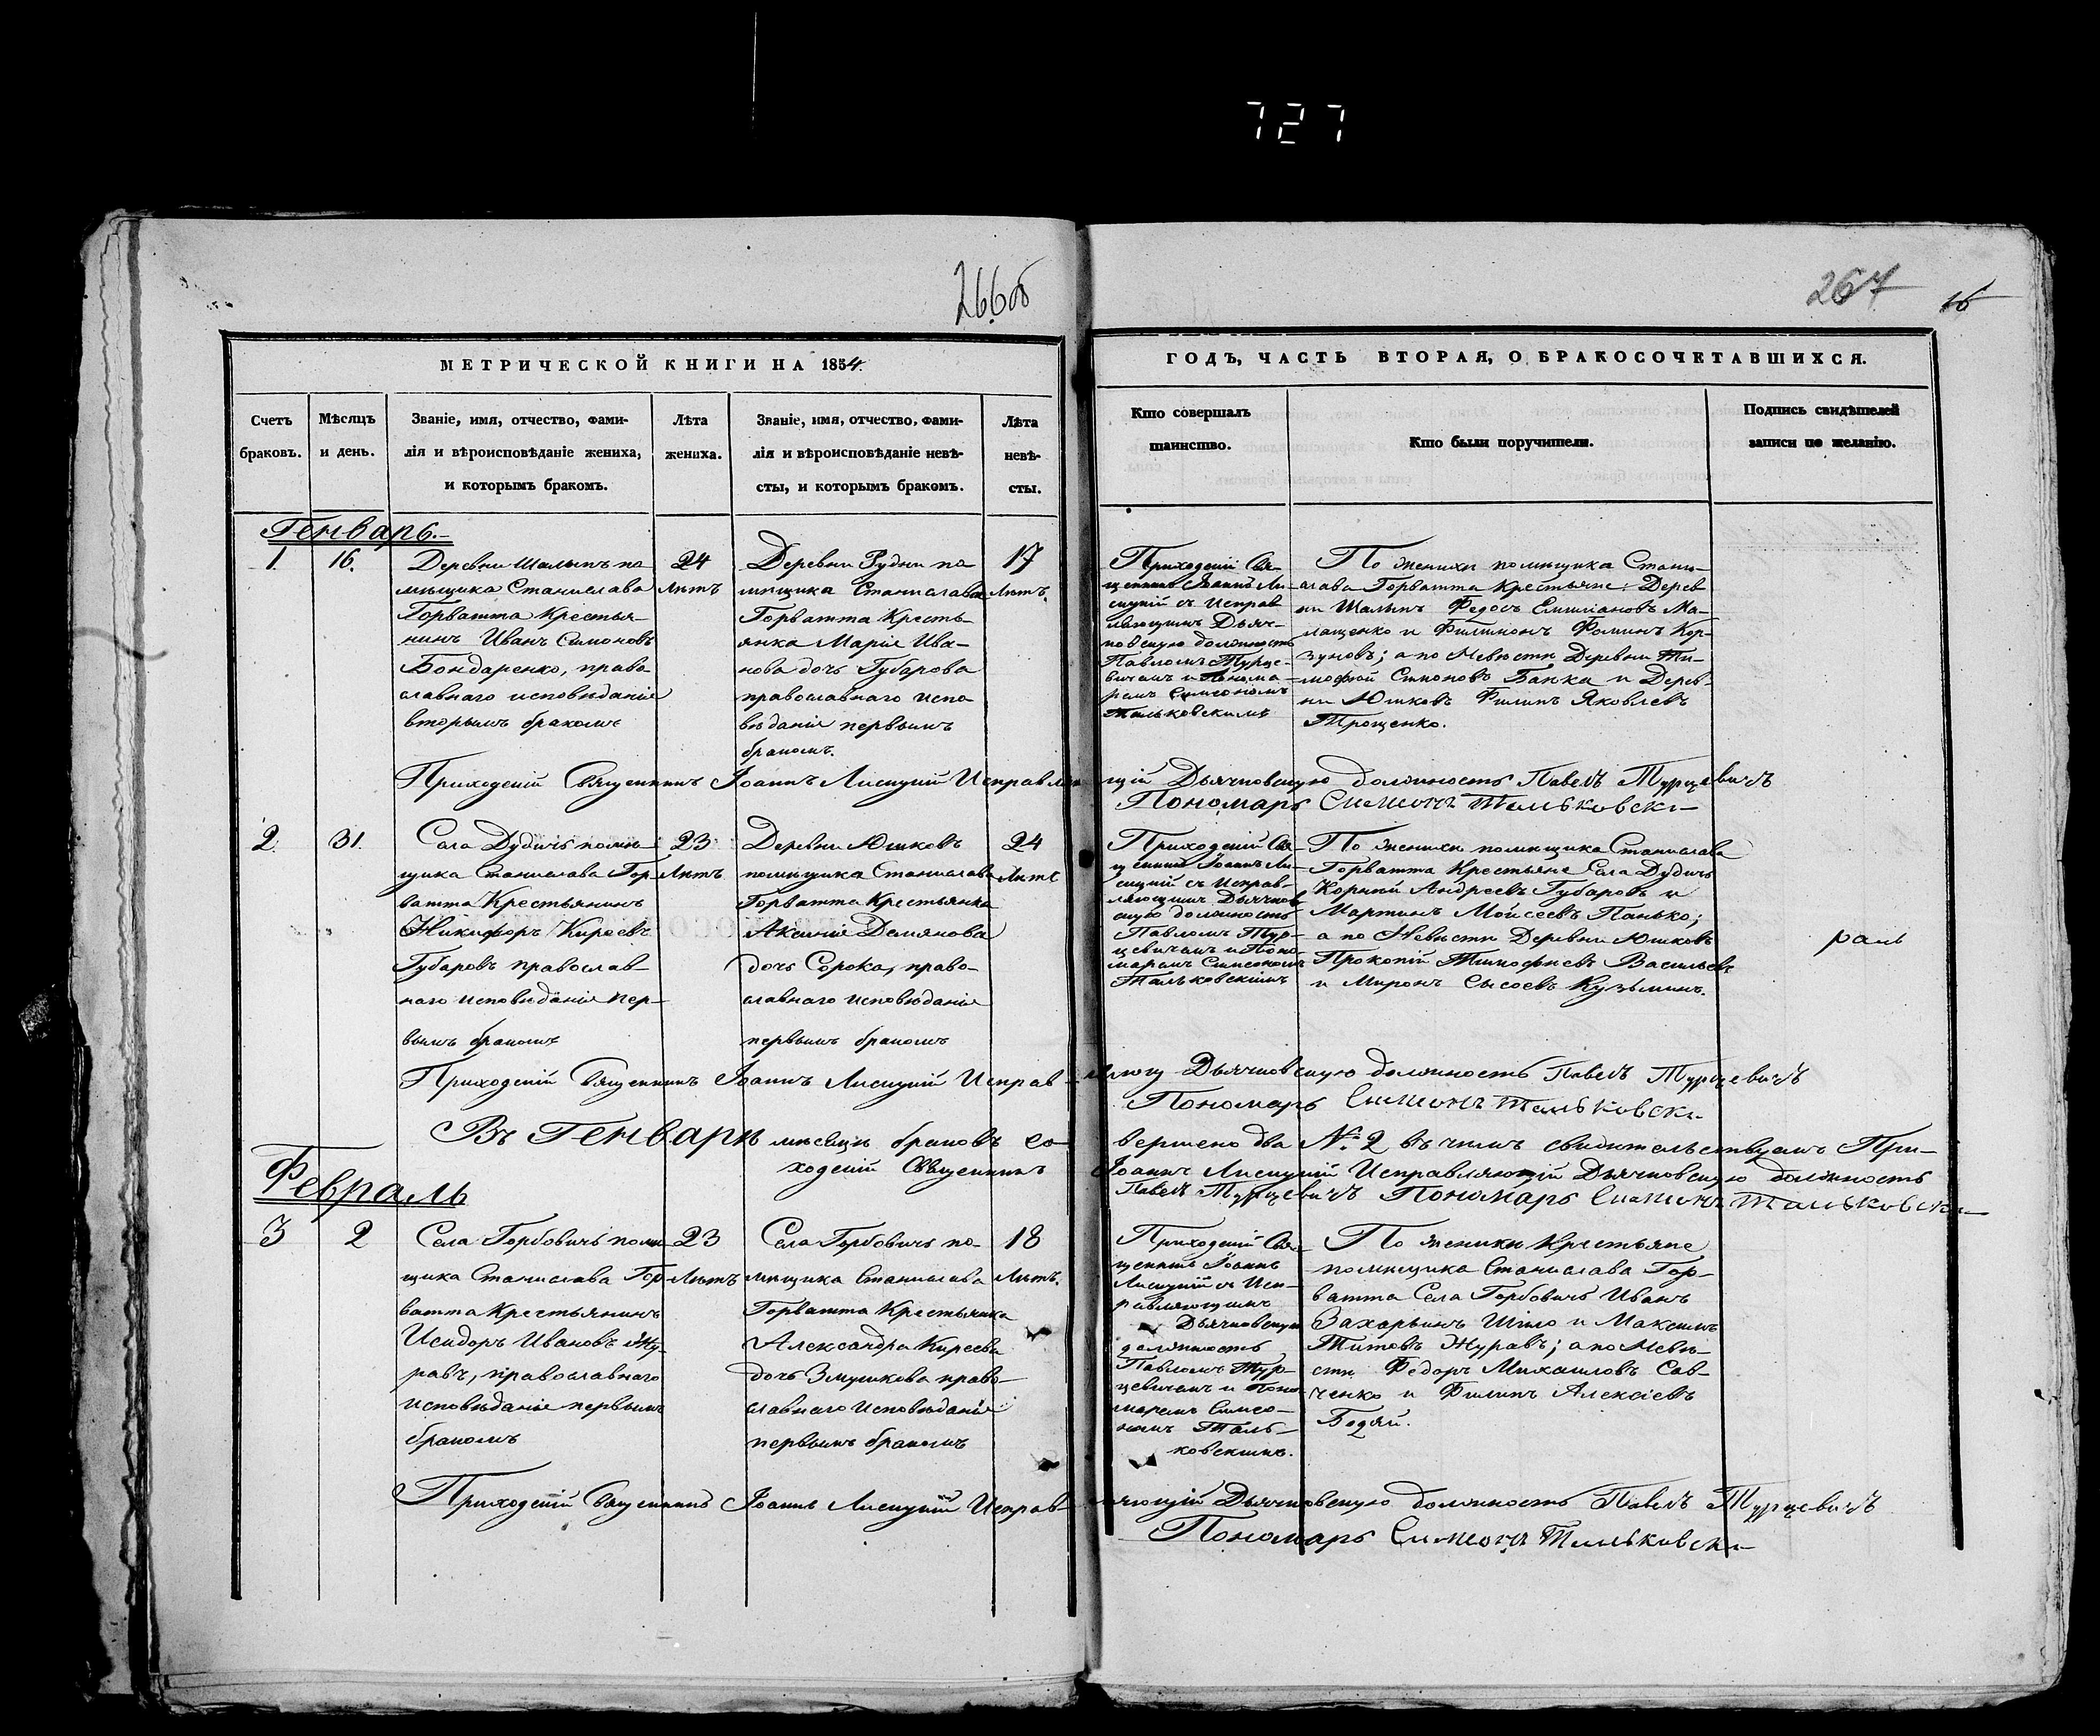 727
266об
267
16
МЕТРИЧЕСКОЙ КНИГИ НА 1854.
Счетъ браковъ.
Мѣсяцъ и день.
Званіе, имя, отчество, фами-
лія и вѣроисповѣданіе жениха,
и которымъ бракомъ.
Лѣта жениха.
Званіе, имя, отчество, фами-
лія и вѣроисповѣданіе невѣ-
сты, и которымъ бракомъ.
Лѣта невѣ-
сты.
ГОДЪ, ЧАСТЬ ВТОРАЯ, О БРАКОСОЧЕТАВШИХСЯ.
Кто совершалъ
таинство.
Кто были поручители.
Подпись свидѣтелей
записи по желанію.
Генварь.
1.
16.
Деревни Шалыпъ по
мѣщика Станислава
Горватта Крестья-
нинъ Иванъ Симоновъ
Бондаренко, право
славнаго исповѣданія
вторымъ бракомъ
24
Лѣтъ
Деревни Рудни по
мѣщика Станислава
Горватта Кресть-
янка Марія Ива-
нова дочь Губарова
православнаго испо
вѣданія первымъ
бракомъ.
17
Лѣтъ.
Приходскій Свя-
щенникъ Іоаннъ Ли-
сицкій съ Исправ
ляющимъ Дьяч-
ковскую должность
Павломъ Турце-
вичамъ и Понома
ремъ Симеономъ
Тальковскимъ
По женихи помѣщика Стани-
слава Горватта Крестьяне: Дерев
ни Шалыпъ Федосъ Емильяновъ Ма-
лащенко и Филимонъ Фоминъ Кор-
зуновъ; а по Невѣсти Деревни Ти-
мофей Симоновъ Банка и Дерев-
ни Юшковъ Филипъ Яковлевъ
Трощенко.
Приходскій Священникъ Іоаннъ Лисицкій Исправляю
щій Дьячковскую должность Павелъ Турцевичъ
Пономарь Симеонъ Тальковскі
2.
31.
Села Дудичъ помѣ-
щика Станислава Гор-
ватта Крестьянинъ
Никифоръ Киреевъ
Губаровъ православ-
наго исповѣданія пер-
вымъ бракомъ
23
Лѣтъ
Деревни Юшковъ
помѣщика Станислава
Горватта Крестьянка
Аксинія Демянова
дочь Сорока, право-
славнаго исповѣданія
первымъ бракомъ
24
Лѣтъ
Приходскій Свя-
щенникъ Іоаннъ Ли-
сицкій съ Исправ-
ляющимъ Дьячков
скую должность
Павломъ Тур-
цевичамъ и Поно-
маремъ Симеономъ
Тальковскимъ
По женихи помѣщика Станислава
Горватта Крестьяне Села Дудичъ
Корній Андреевъ Губаровъ и
Мартинъ Моисеевъ Панько;
а по Невѣсти Деревни Юшковъ
Прокопій Тимофѣевъ Васильевъ
и Миронъ Сысоевъ Кузьминъ.
Приходскій Священникъ Іоаннъ Лисицкій Исправ-
ляющ Дьячковскую должность Павелъ Турцевичъ
Пономарь Симеонъ Тальковскі
Въ Генварѣ мѣсяцѣ браковъ со-
вершено два № 2 въ чемъ свидительствуемъ При-
ходскій Священникъ
Іоаннъ Лисицкій Исправляющій Дьячковскую должность
Павелъ Турцевичъ Пономарь Симеонъ Тальковскі
Февраль
3
2
Села Горбовичъ помѣ
щика Станислава Гор
ватта Крестьянинъ
Исидоръ Ивановъ Жу-
равъ, православнаго
исповѣданія первымъ
бракомъ
23
Лѣтъ
Села Горбовичъ по-
мѣщика Станислава
Горватта Крестьянка
Александра Киреева
дочь Змушкова право-
славнаго исповѣданія
первымъ бракомъ
18
Лѣтъ.
Приходскій Свя-
щенникъ Іоаннъ
Лисицкій съ Исп-
равляющимъ
Дьячковскую
должность
Павломъ Тур-
цевичамъ и Поно
маремъ Симео-
номъ Таль-
ковскимъ.
По женихи Крестьяне
помѣщика Станислава Гор-
ватта Села Горбовичъ Иванъ
Захарьинъ Шило и Максимъ
Титовъ Журавъ; а по Невѣ-
сти Федоръ Михаиловъ Сав-
ченко и Филипъ Алексіевъ
Бодяй.
Приходскій Священникъ Іоаннъ Лисицкій Исправ-
ляющій Дьячковскую должность Павелъ Турцевичъ
Пономарь Симеонъ Тальковскі